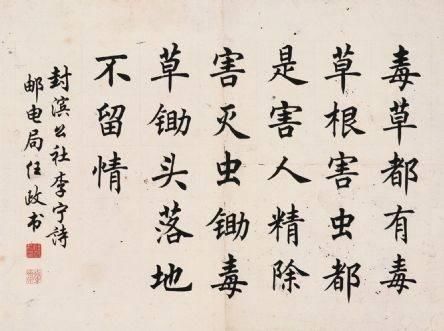 毒草都有毒
草根害虫都
是害人精除
害灭虫锄毒
草锄头落地
不留情
封滨公社李宁詩
邮电局任政书